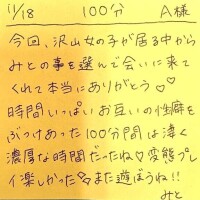 11/18 100分 A様
今回、沢山女の子が居る中から
みとの事を選んで会いに来て
くれて本当にありがとう♡♡
時間いっぱいお互いの性癖を
ぶつけあった100分間は凄く
濃厚な時間だったね♡変態プレ
イ楽しかった🎶また遊ぼうね!!
みと